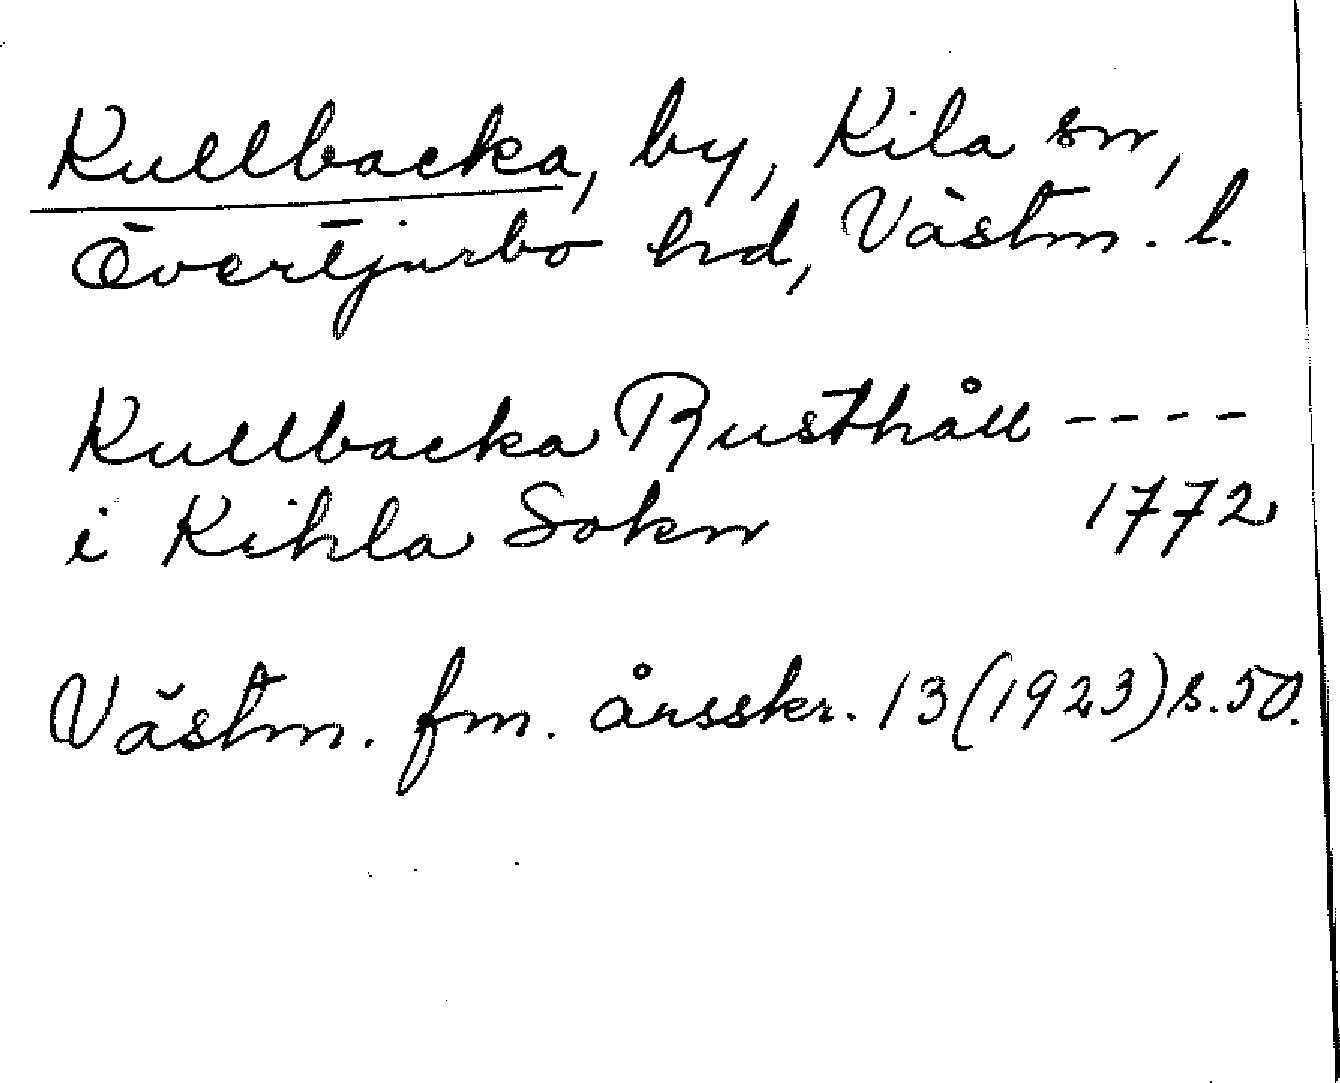 Kullbacka, by, Kila sn,
Övertjurbo hd, Västm. l.
Kullbacka Rusthåll ----
i Kihla Sokn 1772
Västm. fm. årsskr. 13 (1923) s. 50.